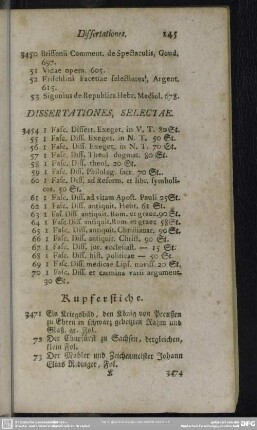 Dissertationes. 145
3450 Brissonii Comment. de Spectaculis, Goud.
697.
51 Vidae opera. 605.
52 Frischlini Facetiae selectiores, Argent.
615.
53 Sigonius de Republica Hebr. Mediol. 678.
DISSERTATIONES, SELECTAE.
3454 1 Fasc. Dissert. Exeget. in V. T. 80 St.
55 1 Fasc. Diss. Exeget. in N. T. 50 St.
56 1 Fasc. Diss. Exeget. in N. T. 70 St.
57 1 Fasc. Diss. Theol dogmat. 80 St.
58 1 Fasc. Diss. theol. 20 St.
59 1 Fasc. Diss. Philolog. sacr. 70 St.
60 1 Fasc. Diss. ad Reform. et libr. symboli-
cos. 50 St.
61 1 Fasc. Diss. ad vitam Apost. Pauli 25 St.
62 1 Fasc. Diss. antiquit. Hebr. 61 St.
63 1 Fasc. Diss antiquit. Rom. et graec. 90 St.
64 1 Fasc. Diss antiquit. Rom. et graec 58 St.
65 1 Fasc. Diss. antiquit. Christianae. 50 St.
66 1 Fasc. Diss. antiquit. Christ. 90 St.
67 1 Fasc. Diss. jur. ecclesiast. — 15 St.
68 1 Fasc. Diss. hist. politicae — 50 St.
69 1 Fasc. Diss. medicae Lips. noviss. 20 St.
70 1 Fasc. Diss. et carmina varii argument.
30 St.
Kupferstiche.
3471 Ein Kniestück, den König von Preussen
zu Ehren in schwarz gebeizten Rahm und
Glaß. gr. Fol.
72 Der Churfürst zu Sachsen, dergleichen,
klein Fol.
73 Der Mahler und Zeichenmeister Johann
Elias Ridinger, Fol.
K 3474